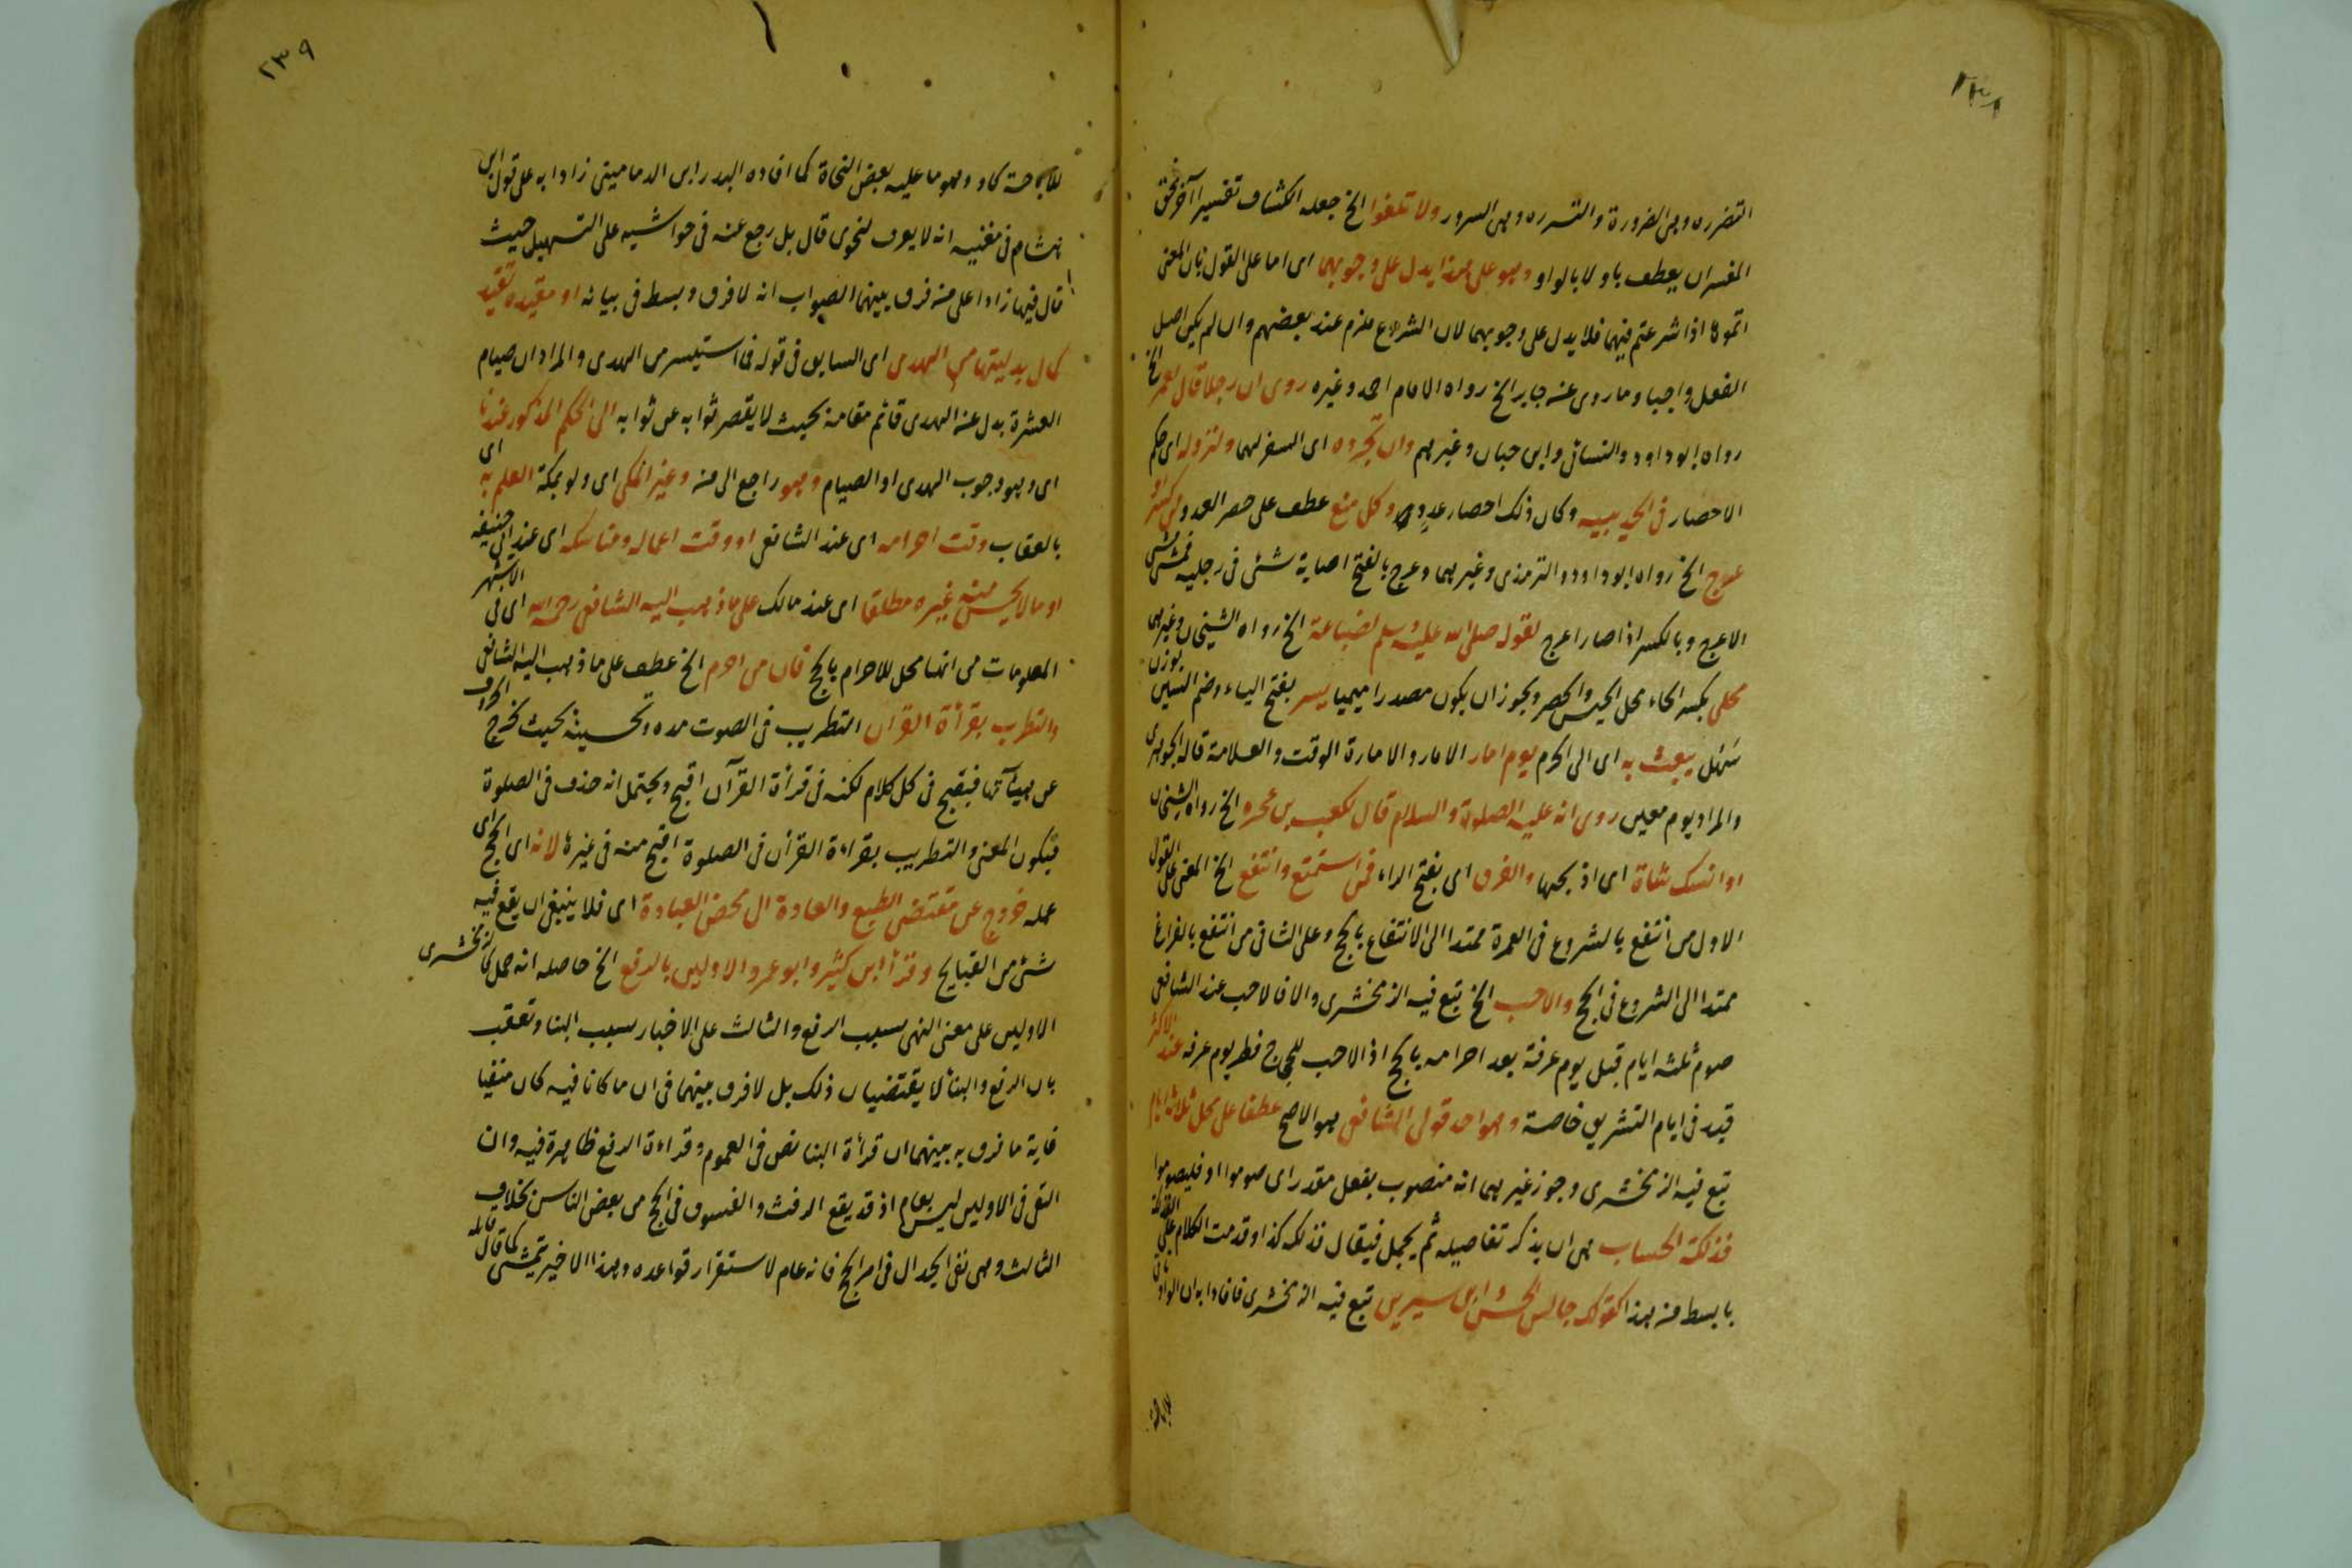 ٢٣٨
التضرره وهى الضرورة والتسرره وهى السرور ولا تلغوا الخ جعله الكشاف تفسيرا آخر فحق
المفسران يعطف باو لا بالواو وهو على هذا يدل على وجوبهما اى اما على القول بان المعنى
اتموها اذا شرعتم فيهما فلا يدل على وجوبهما لان الشروع ملزم عند بعضهم وان لم يكن اصل
الفعل واجبا وما روى عنه جابر الخ رواه الامام احمد وغيره روى ان رجلا قال لعمر الخ
رواه ابو داود والنسائى وابن حبان وغيرهم وان تجرده اى السفر لهما ولنزوله اى حكم
الاحصار فى الحديبيه وكان ذلك احصار عدو وكل منع عطف على حصر العدو من كسر او
عرج الخ رواه ابو داود والترمذى وغيرهما وعرج بالفتح اصابة شئ فى رجليه فمشى مشى
الاعرج وبالكسر اذا صار اعرج لقوله صلى الله عليه وسلم لضباعة الخ رواه الشيخان وغيرهما
محلى بكسر الحاء محل الحبس والحصر ويجوز ان يكون مصدرا ميميا يسر بفتح الياء وضم السين بوزن
سهل يبعث به اى الى الحرم يوم امار الامار والامارة الوقت والعلامة قاله الجوهرى
والمراد يوم معين روى انه عليه الصلوة والسلام قال لكعب بن عجره الخ رواه الشيخان
او انسك شاة اى اذبحها والفرق اى بفتح الراء فمن استمتع وانتفع الخ المعنى على القول
الاول من انتفع بالشروع فى العمرة ممتدا الى الانتفاع بالحج وعلى الثانى من انتفع بالفراغ
ممتدا الى الشروع فى الحج والاحب الخ تبع فيه الزمخشرى والا فالاحب عند الشافعى
صوم ثلثه ايام قبل يوم عرفة بعد احرامه بالحج اذ الاحب للحجاج فطر يوم عرفه عند الاكثر
قيد فى ايام التشريق خاصة وهو احد قولى الشافعى هو الاصح عطفا على محل ثلاثة ايام
تبع فيه الزمخشرى وجوز غيرهما انه منصوب بفعل مقدر اى صوموا او فليصوموا
فذلكة الحساب هى ان يذكر تفاصيله ثم يجمل فيقال فذلكه كذا وقد مت الكلام على الفذلكة
بابسط من هذا كقولك جالس الحسن وابن سيرين تبع فيه الزمخشرى فافادا به ان الواو
٢٣٩
للاباحة كاو وهو ما عليه بعض النحاة كما افاده البدر ابن الدمامينى زادا به على قول ابن
هشام فى مغنيه انه لا يعرف لنحوى قال بل رجع عنه فى حواشيه على التسهيل حيث
قال فيها زادا على منه فرق بينهما الصواب انه لا فرق وبسط فى بيانه او مقيده تقيد
كمال بدليتها من الهدى اى السابق فى قوله فما استيسر من الهدى والمراد ان صيام
العشرة بدل عنه الهدى قائم مقامه بحيث لا يقصر ثوابه عن ثوابه الى الحكم المذكور عندنا
اى وهو وجوب الهدى او الصيام وهو راجع الى منه وغير المكى اى ولو بمكة العلم به اى
بالعقاب وقت احرامه اى عند الشافعى او وقت اعماله ومناسكه اى عند ابى حنيفه
او ما لا يحسن منه غيره مطلقا اى عند مالك على ما ذهب اليه الشافعى رحمه الله اى فى الاشهر
المعلومات من انها محل للاحرام بالحج فان من احرم الخ عطف على ما ذهب اليه الشافعى
والتطريب بقرأة القرآن التطريب فى الصوت مده وتحسينه بحيث تخرج الحروف
عن هيآتها فيقبح فى كل كلام لكنه فى قرأة القرآن اقبح ويحتمل انه حذف فى الصلوة
فيكون المعنى والتطريب بقراءة القرآن فى الصلوة اقبح منه فى غيرها لانه اى الحج اى
عمله خروج عن مقتضى الطبع والعادة الى محض العبادة اى فلا ينبغى ان يقع فيه
شئ من القبايح وقرأ ابن كثير وابو عمرو الاولين بالرفع الخ حاصله انه حمل كالزمخشرى
الاولين على معنى النهى بسبب الرفع والثالث على الاخبار بسبب البنا وتعقب
بان الرفع والبنا لا يقتضيان ذلك بل لا فرق بينهما فى ان ما كانا فيه كان منفيا
غاية ما فرق به بينهما ان قرأة البنا نص فى العموم وقراءة الرفع ظاهرة فيه وان
النفى فى الاولين ليس بعام اذ قد يقع الرفث والفسوق فى الحج من بعض الناس بخلاف
الثالث وهى نفى الجدال فى امر الحج فانه عام لاستقرار قواعده وهذا الاخير يتمشى كما قاله